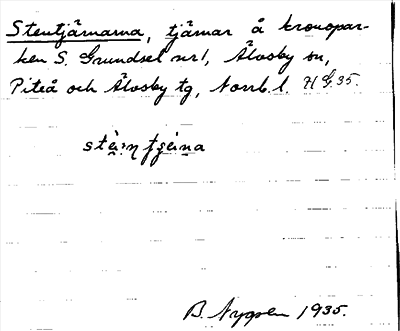 Stentjärnarna, tjärnar å kronopar-
ken S. Grundsel nr 1, Älvsby sn,
Piteå och Älvsby tg, Norrb. l. H G. 35.
B. Nygren 1935.